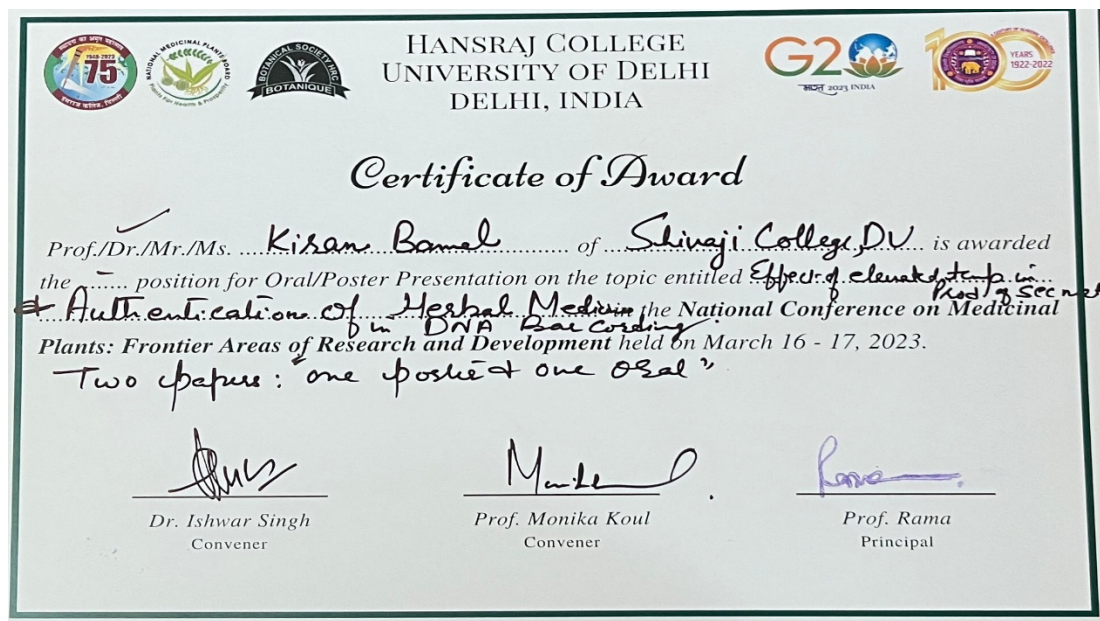 1948-2023
75
NATIONAL MEDICINAL PLANTS BOARD
Plants For Health & Prosperity
BOTANICAL SOCIETY HRC
BOTANIQUE
HANSRAJ COLLEGE
UNIVERSITY OF DELHI
DELHI, INDIA
G20
भारत 2023 INDIA
100
YEARS
1922-2022
Certificate of Award
Prof./Dr./Mr./Ms. Kiran Bamel of Shivaji College, DU is awarded
the ....... position for Oral/Poster Presentation on the topic entitled Effect of elevated temp in
Prod of sec met
& Authentication of Herbal Medicin the National Conference on Medicinal
in DNA Bar Cording.
Plants: Frontier Areas of Research and Development held on March 16 - 17, 2023.
Two papers: "one poster & one Oral"
Dr. Ishwar Singh
Convener
Prof. Monika Koul
Convener
Prof. Rama
Principal